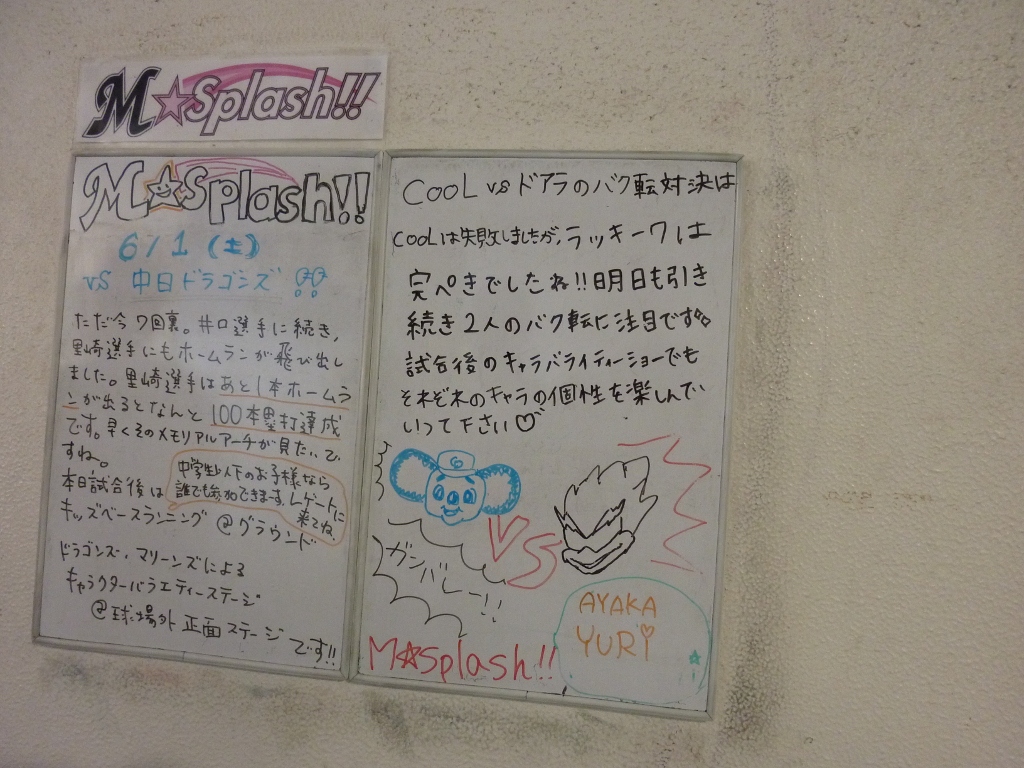 M☆Splash!!
M☆Splash!!
6/1 (土)
vs 中日ドラゴンズ
ただ今7回裏。井口選手に続き、
里崎選手にもホームランが飛び出し
ました。里崎選手はあと1本ホームラ
ンが出るとなんと100本塁打達成
です。早くそのメモリアルアーチが見たいで
すね。
中学生以下のお子様なら
誰でも参加できます。レゲートに
来てね
本日試合後は
キッズベースランニング @グラウンド
ドラゴンズ、マリーンズによる
キャラクターバラエティーステージ
@球場外 正面ステージ です!!
COOL vs ドアラのバク転対決は
COOLは失敗しましたが、ラッキー7は
完ぺきでしたね!!明日も引き
続き2人のバク転に注目です
試合後のキャラバライティーショーでも
それぞれのキャラの個性を楽しんで
いって下さい♡
VS
ガンバレー!!
AYAKA
YURI
M☆Splash!!